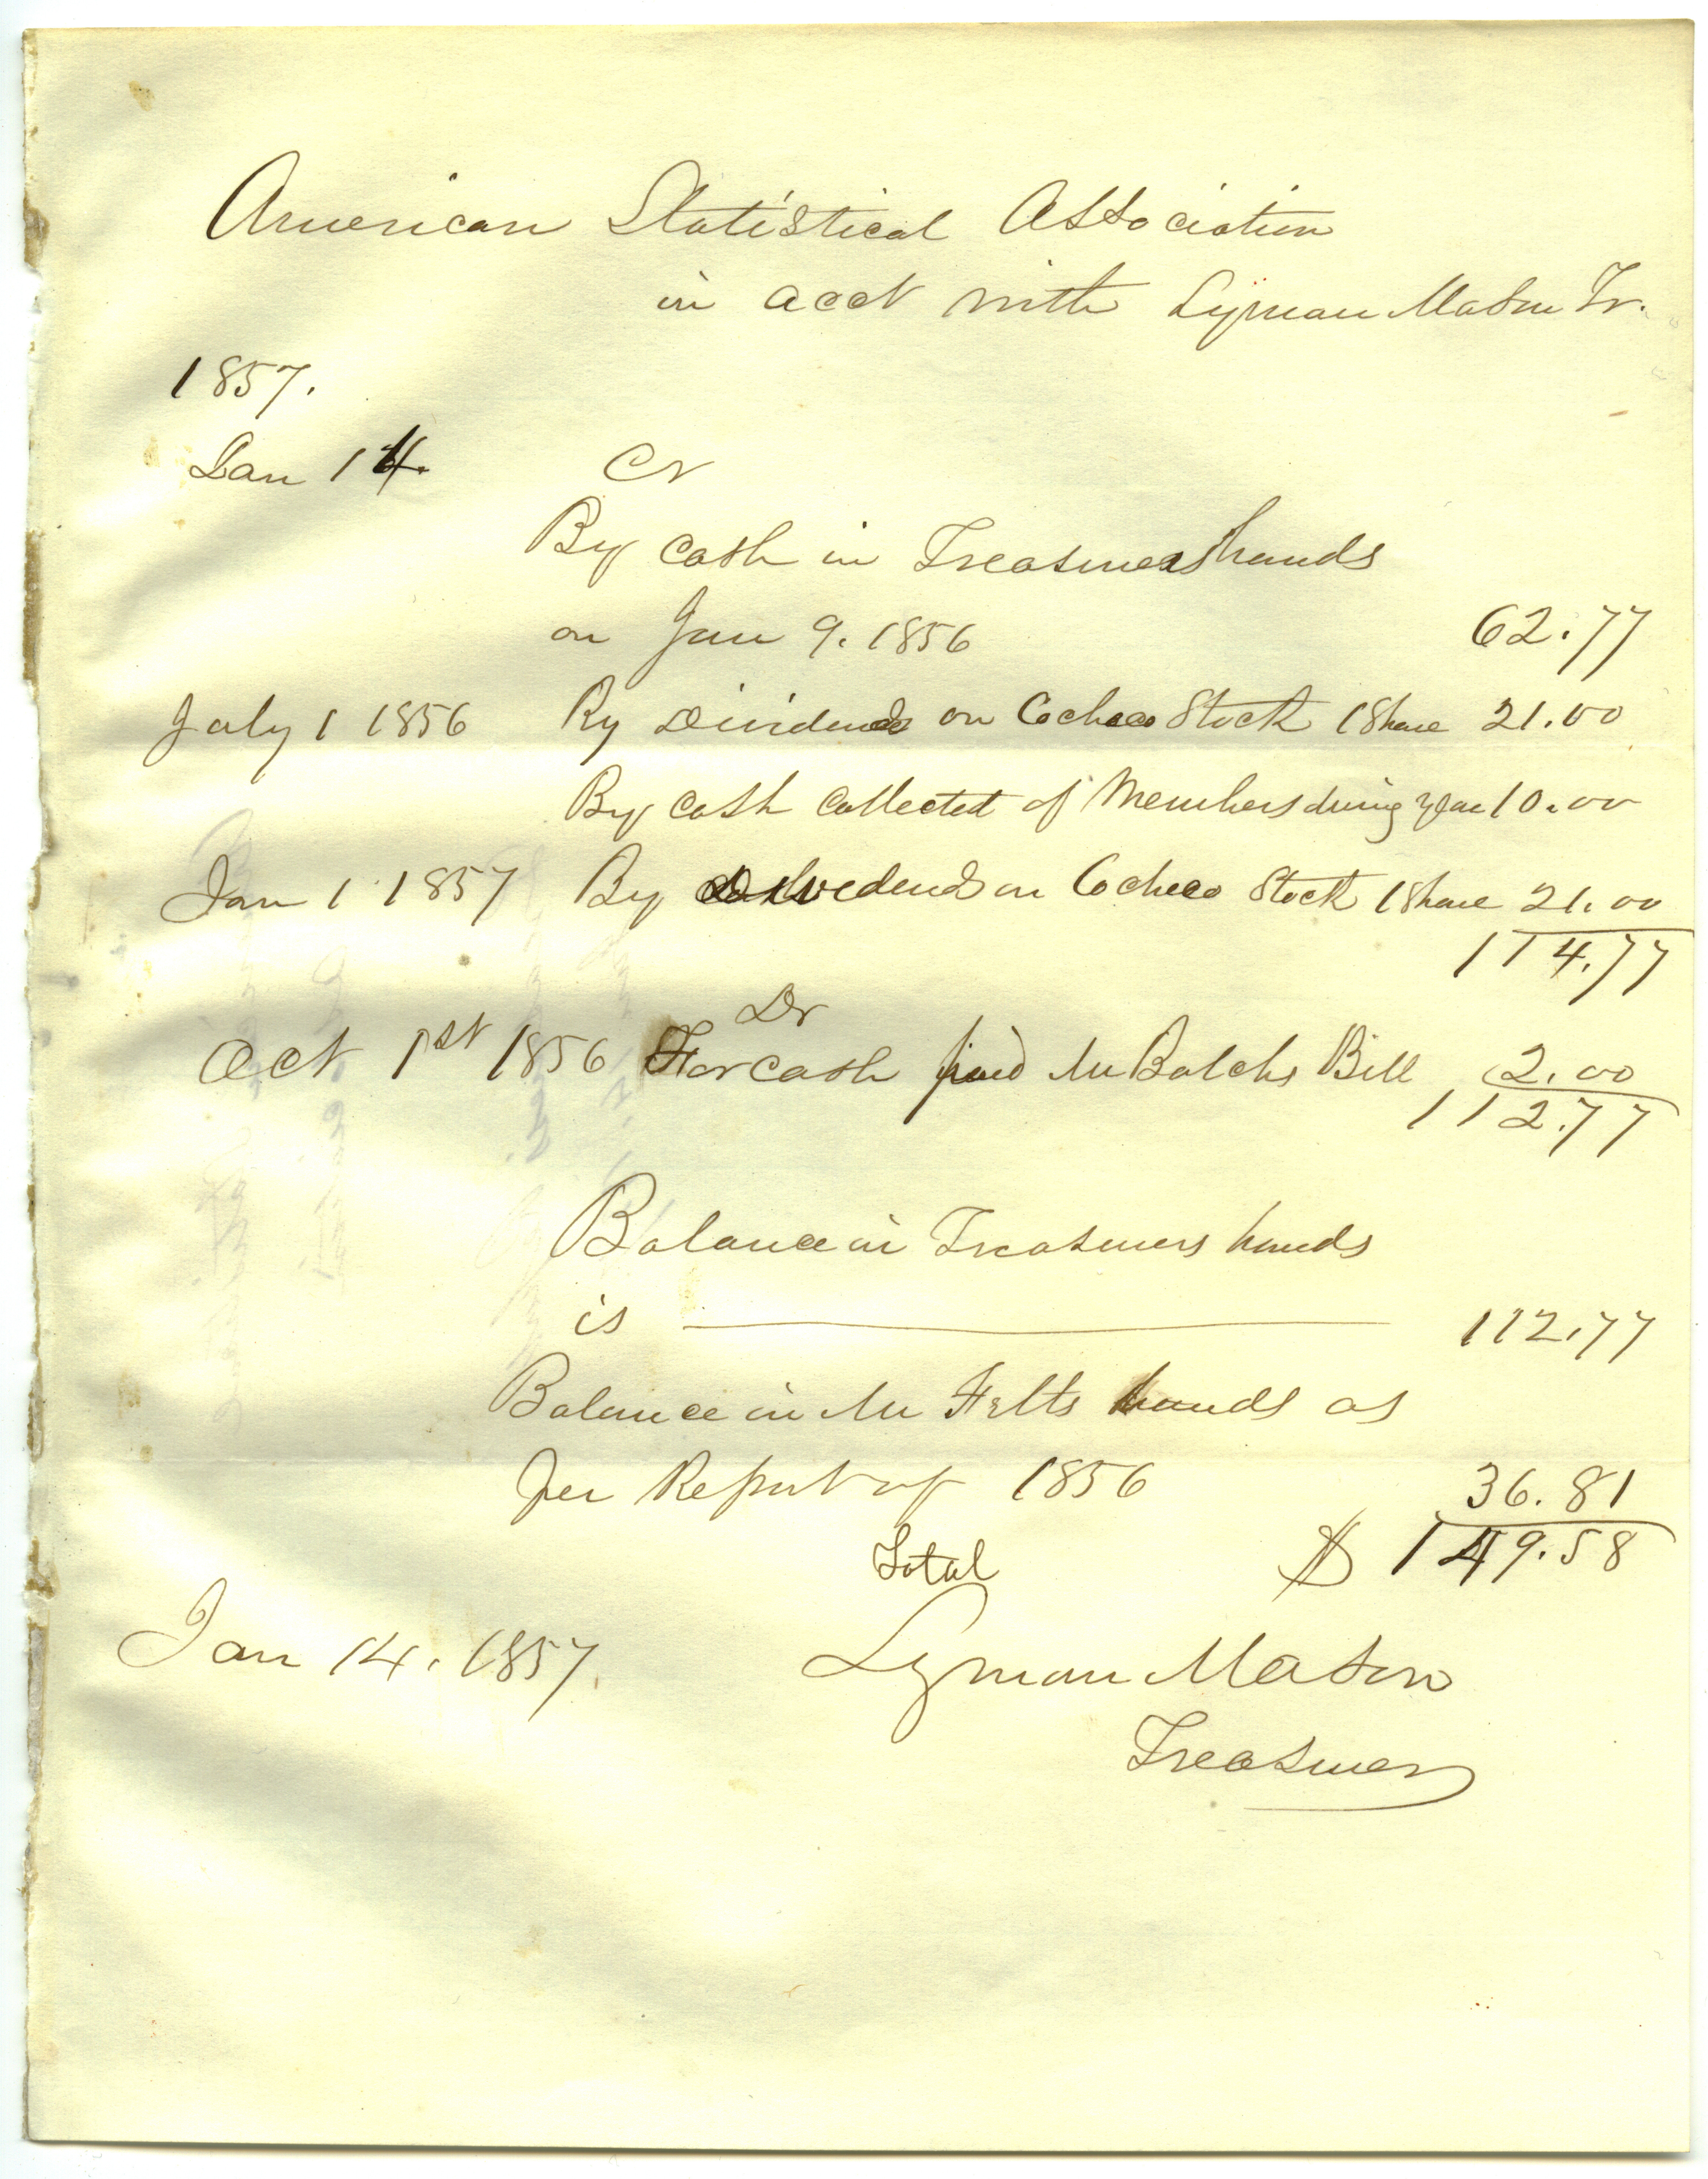 American Statistical Association
in acct with Lyman Mason Tr.
1857.
Jan 14. Cr
By Cash in Treasurers hands
on Jan 9. 1856 62.77
July 1 1856 By Dividends on Cocheco Stock 1 Share 21.00
By Cash Collected of Members during year 10.00
Jan 1 1857 By dividends on Cocheco Stock 1 Share 21.00
114.77
Dr
Oct 1st 1856 For cash paid Mr Balchs Bill 2.00
112.77
Balance in Treasurers hands
is 112.77
Balance in Mr Felts hands as
per Report of 1856 36.81
Total $ 149.58
Jan 14. 1857. Lyman Mason
Treasurer